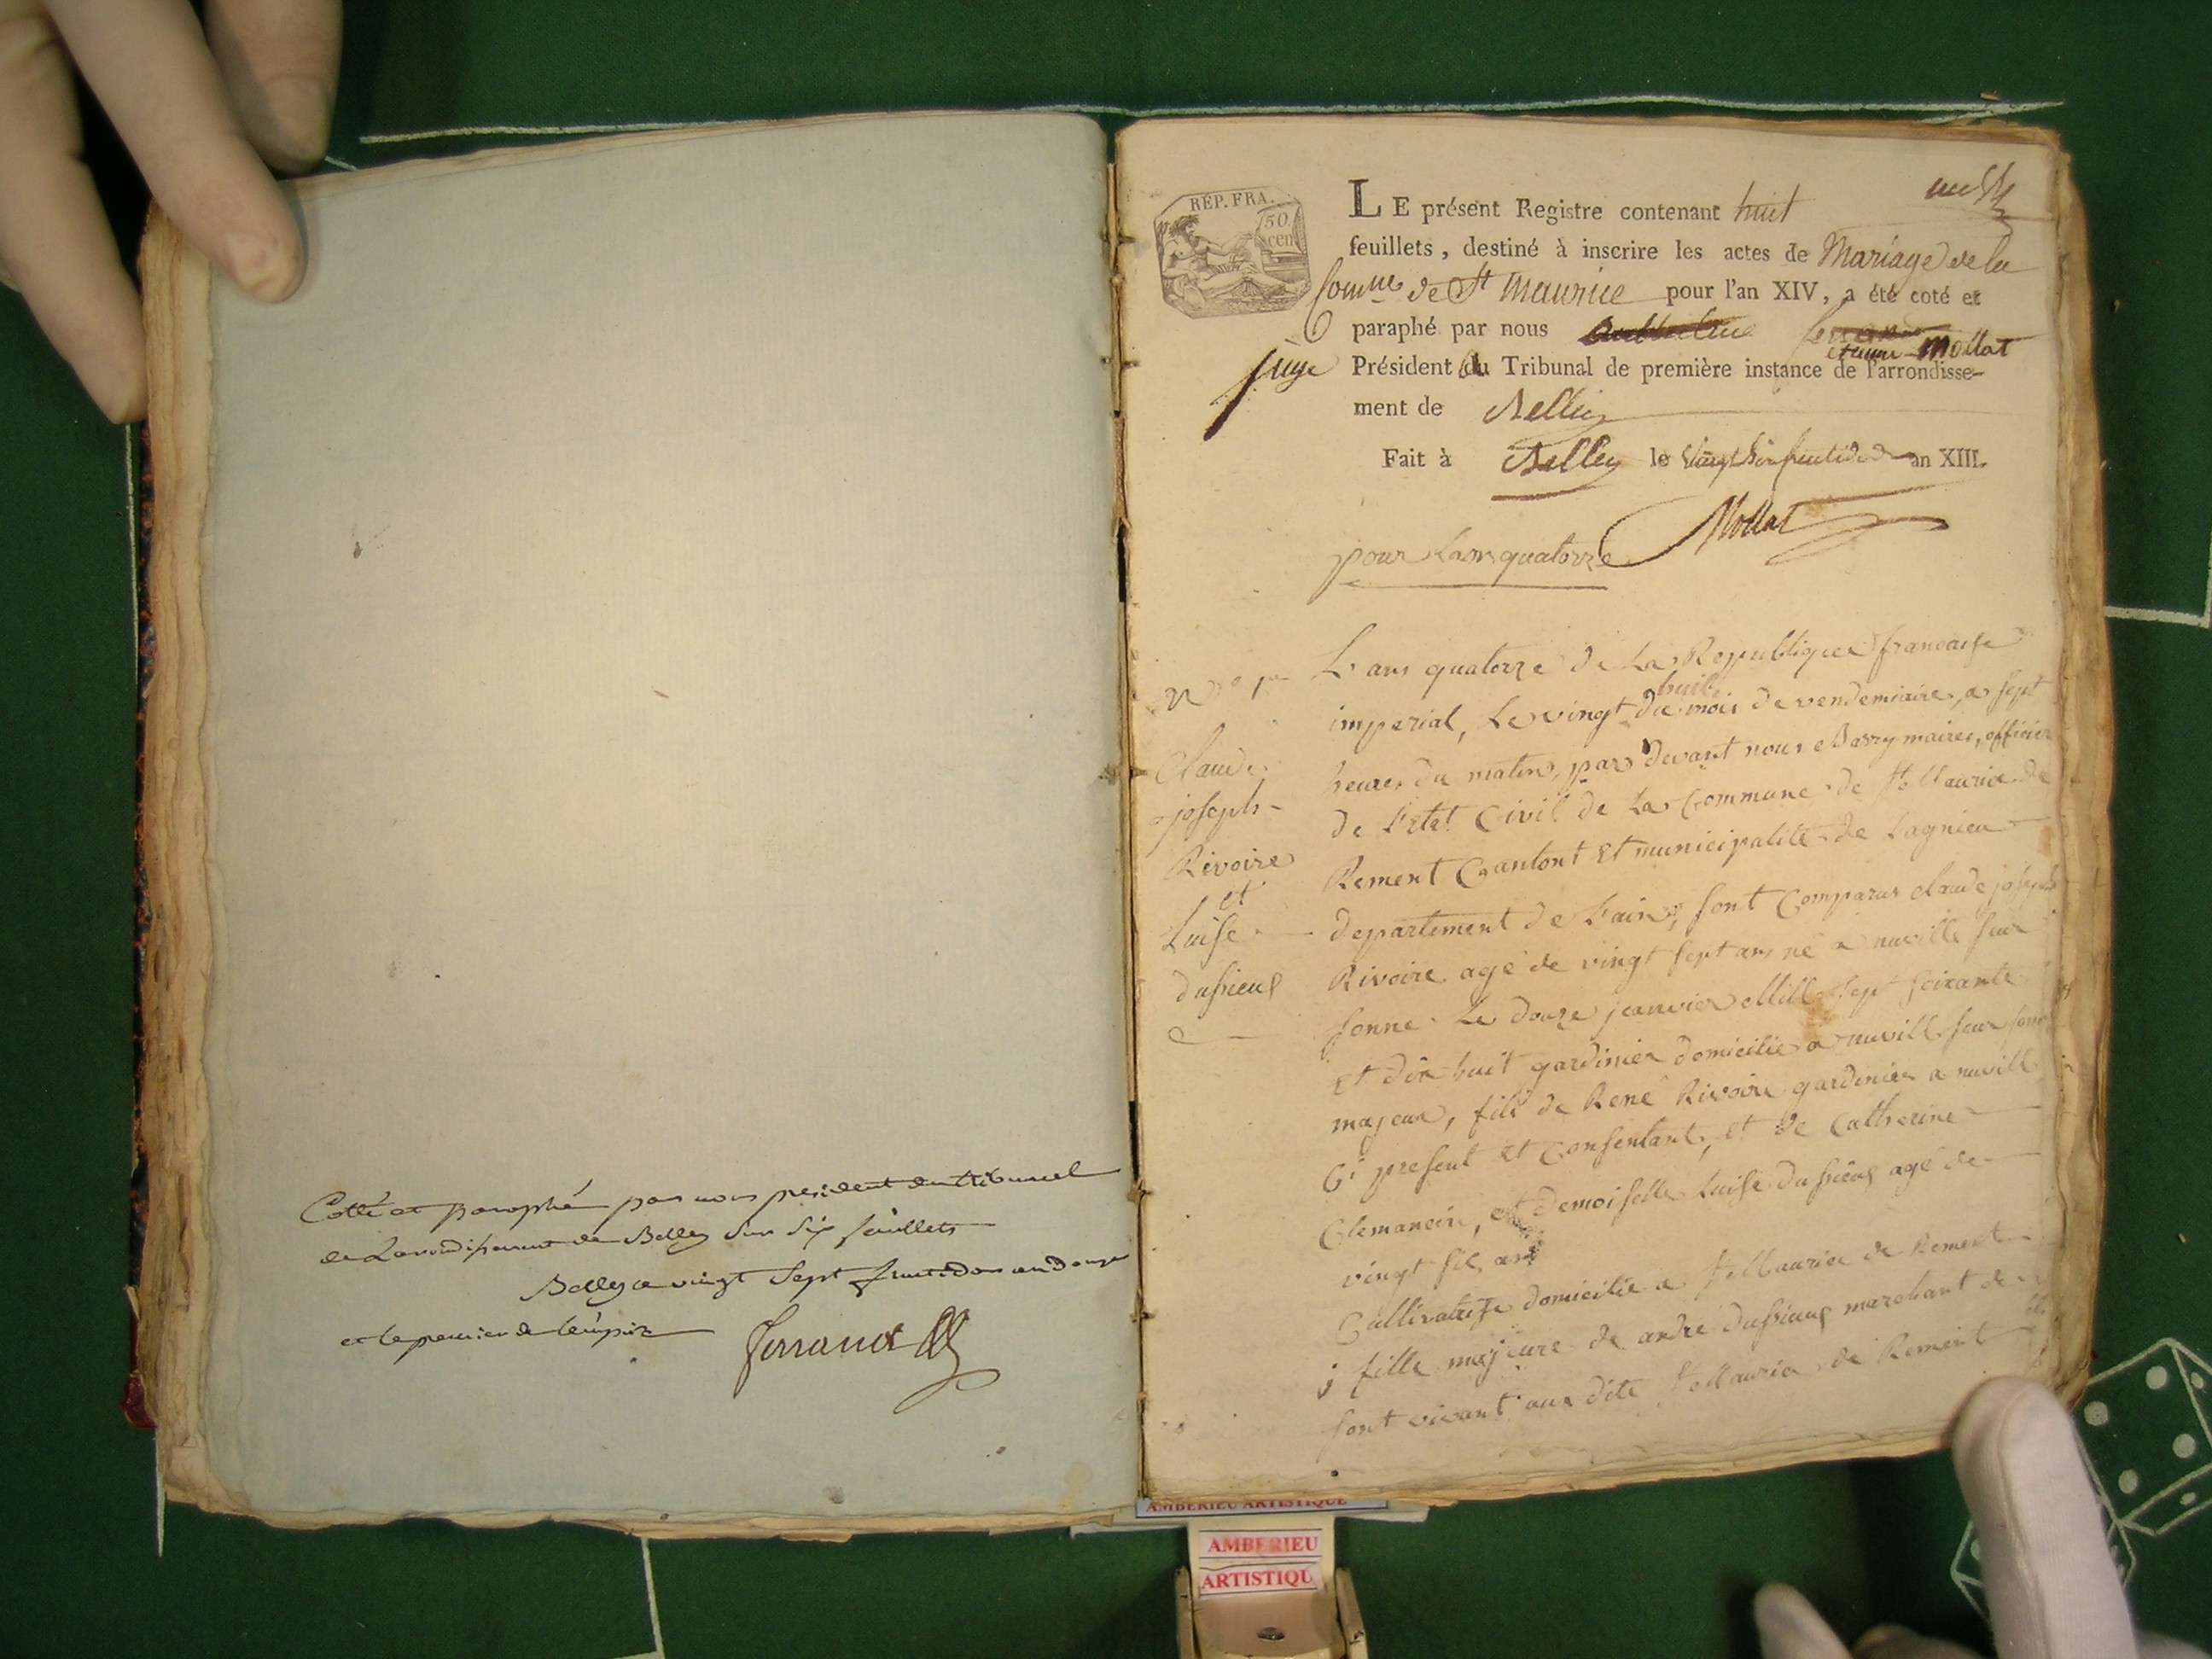 Cotté et paraphé par nous president du tribunal
de Larondissement de Belley sur six feuillets
Belley le vingt sept fructidor an douze
et le premier de l'empire
ferrand
RÉP. FRA.
50
cen
LE présent Registre contenant huit
feuillets, destiné à inscrire les actes de Mariage de la
Comme de St Maurice pour l'an XIV, a été coté et
paraphé par nous etienne Mollat
juge Président du Tribunal de première instance de l'arrondisse-
ment de Belley
Fait à Belley le vingt fructidor an XIII.
Mollat
pour Lan quatorze
N° 1er
Claude
joseph
Rivoire
et
Luise
dussieus
L'ans quatorze de La Republique francaise
huit
imperial, Le vingt du mois de vendemiaire, a sept
heures du matin, par devant nous Barry maire, officier
de l'Etat Civil de La Commune de St Maurice de
Rement Cantont Et municipalité de Lagnieu
departement de L'ain, sont Comparus claude joseph
Rivoire agé de vingt sept ans né a nuville sur
sonne Le douze janvier Mill sept soixante
Et dix huit gardinier domicilie a nuvill sur sonne
majeur, fils de René Rivoire gardinier a nuvill
Ci present Et Consentant, Et de Catherine
Clemancin, et demoiselle Luise dussieus agé de
vingt six ans
Cultivatrise domicilie a St Maurice de Rement
fille majeure de andre dussieus marchant de
sont vivant aux dite St Maurice de Rement
AMBERIEU ARTISTIQUE
AMBERIEU
ARTISTIQU